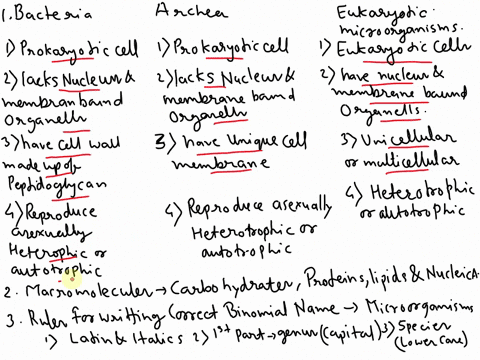 1. Bacteria
1) Prokaryotic cell
2) lacks Nucleus &
membran bound
Organells
3) have cell wall
made up of
Peptidoglycan
4) Reproduce
asexually
Heterophic or
autotrophic
Archea
1) Prokaryotic cell
2) lacks Nucleus &
membrane bound
Organells
3) have Unique cell
membrane
4) Reproduce asexually
Heterotrophic or
autotrophic
Eukaryotic
microorganisms.
1) Eukaryotic Cells
2) have nucleus &
membrane bound
Organells.
3) Unicellular
or multicellular
4) Heterotrophic
or autotrophic
2. Macromolecules → Carbohydrates, Proteins, lipids & NucleicA
3. Rules for writting Correct Binomial Name → Microorganisms
1) Latin & Italics 2) 1st Part → genus (capital) 3) Species
(Lower Case)